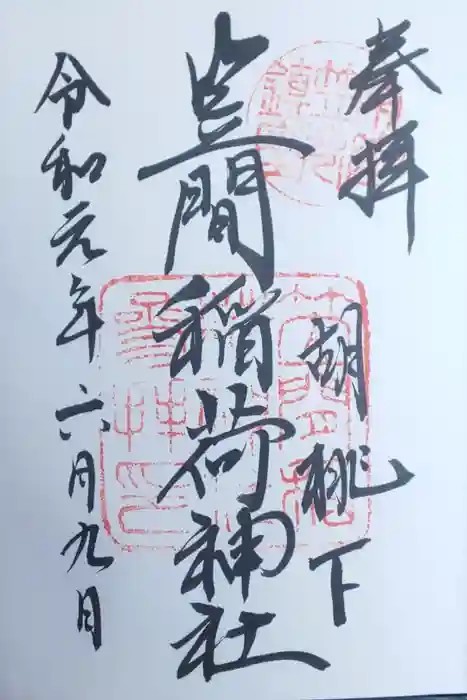 奉拝
胡桃下
笠間稲荷神社
令和元年六月九日